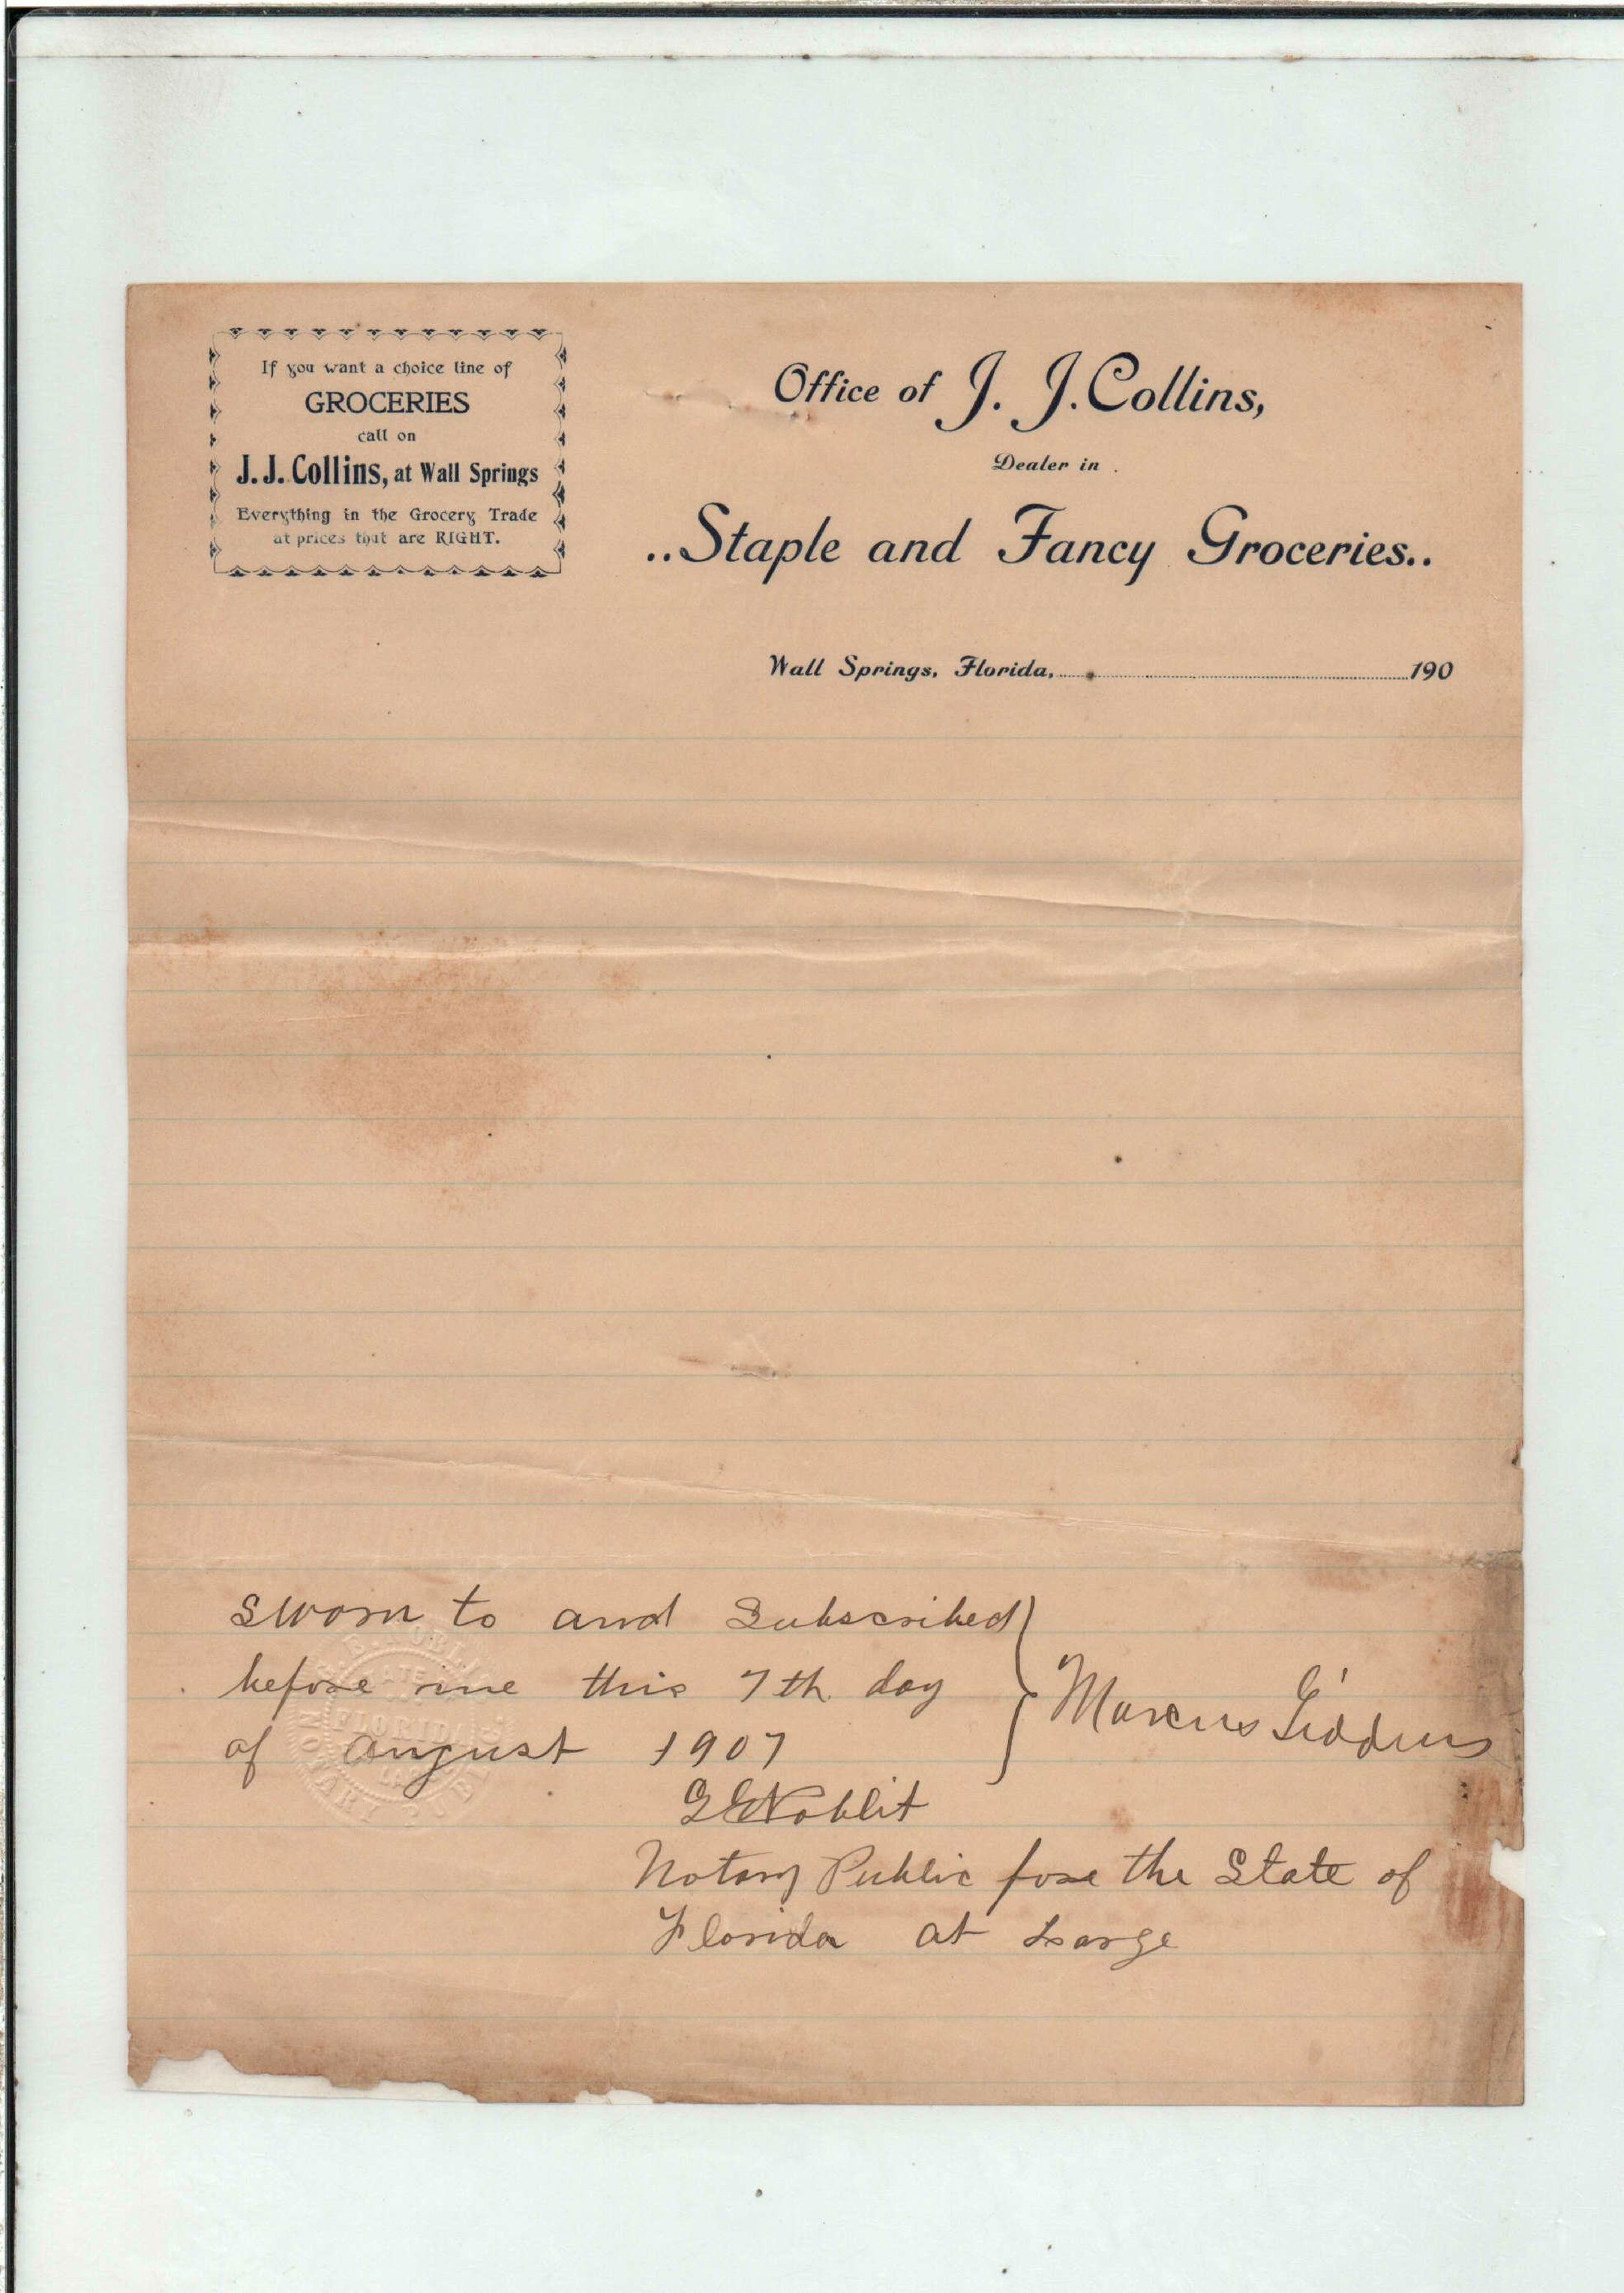 If you want a choice line of
GROCERIES
call on
J. J. Collins, at Wall Springs
Everything in the Grocery Trade
at prices that are RIGHT.
Office of J. J. Collins,
Dealer in
..Staple and Fancy Groceries..
Wall Springs, Florida, 190
Sworn to and Subscribed
before me this 7th day
of August 1907
Marcus Giddens
Noblit
Notary Public fore the State of
Florida at Large
FLORIDA
NOTARY PUBLIC